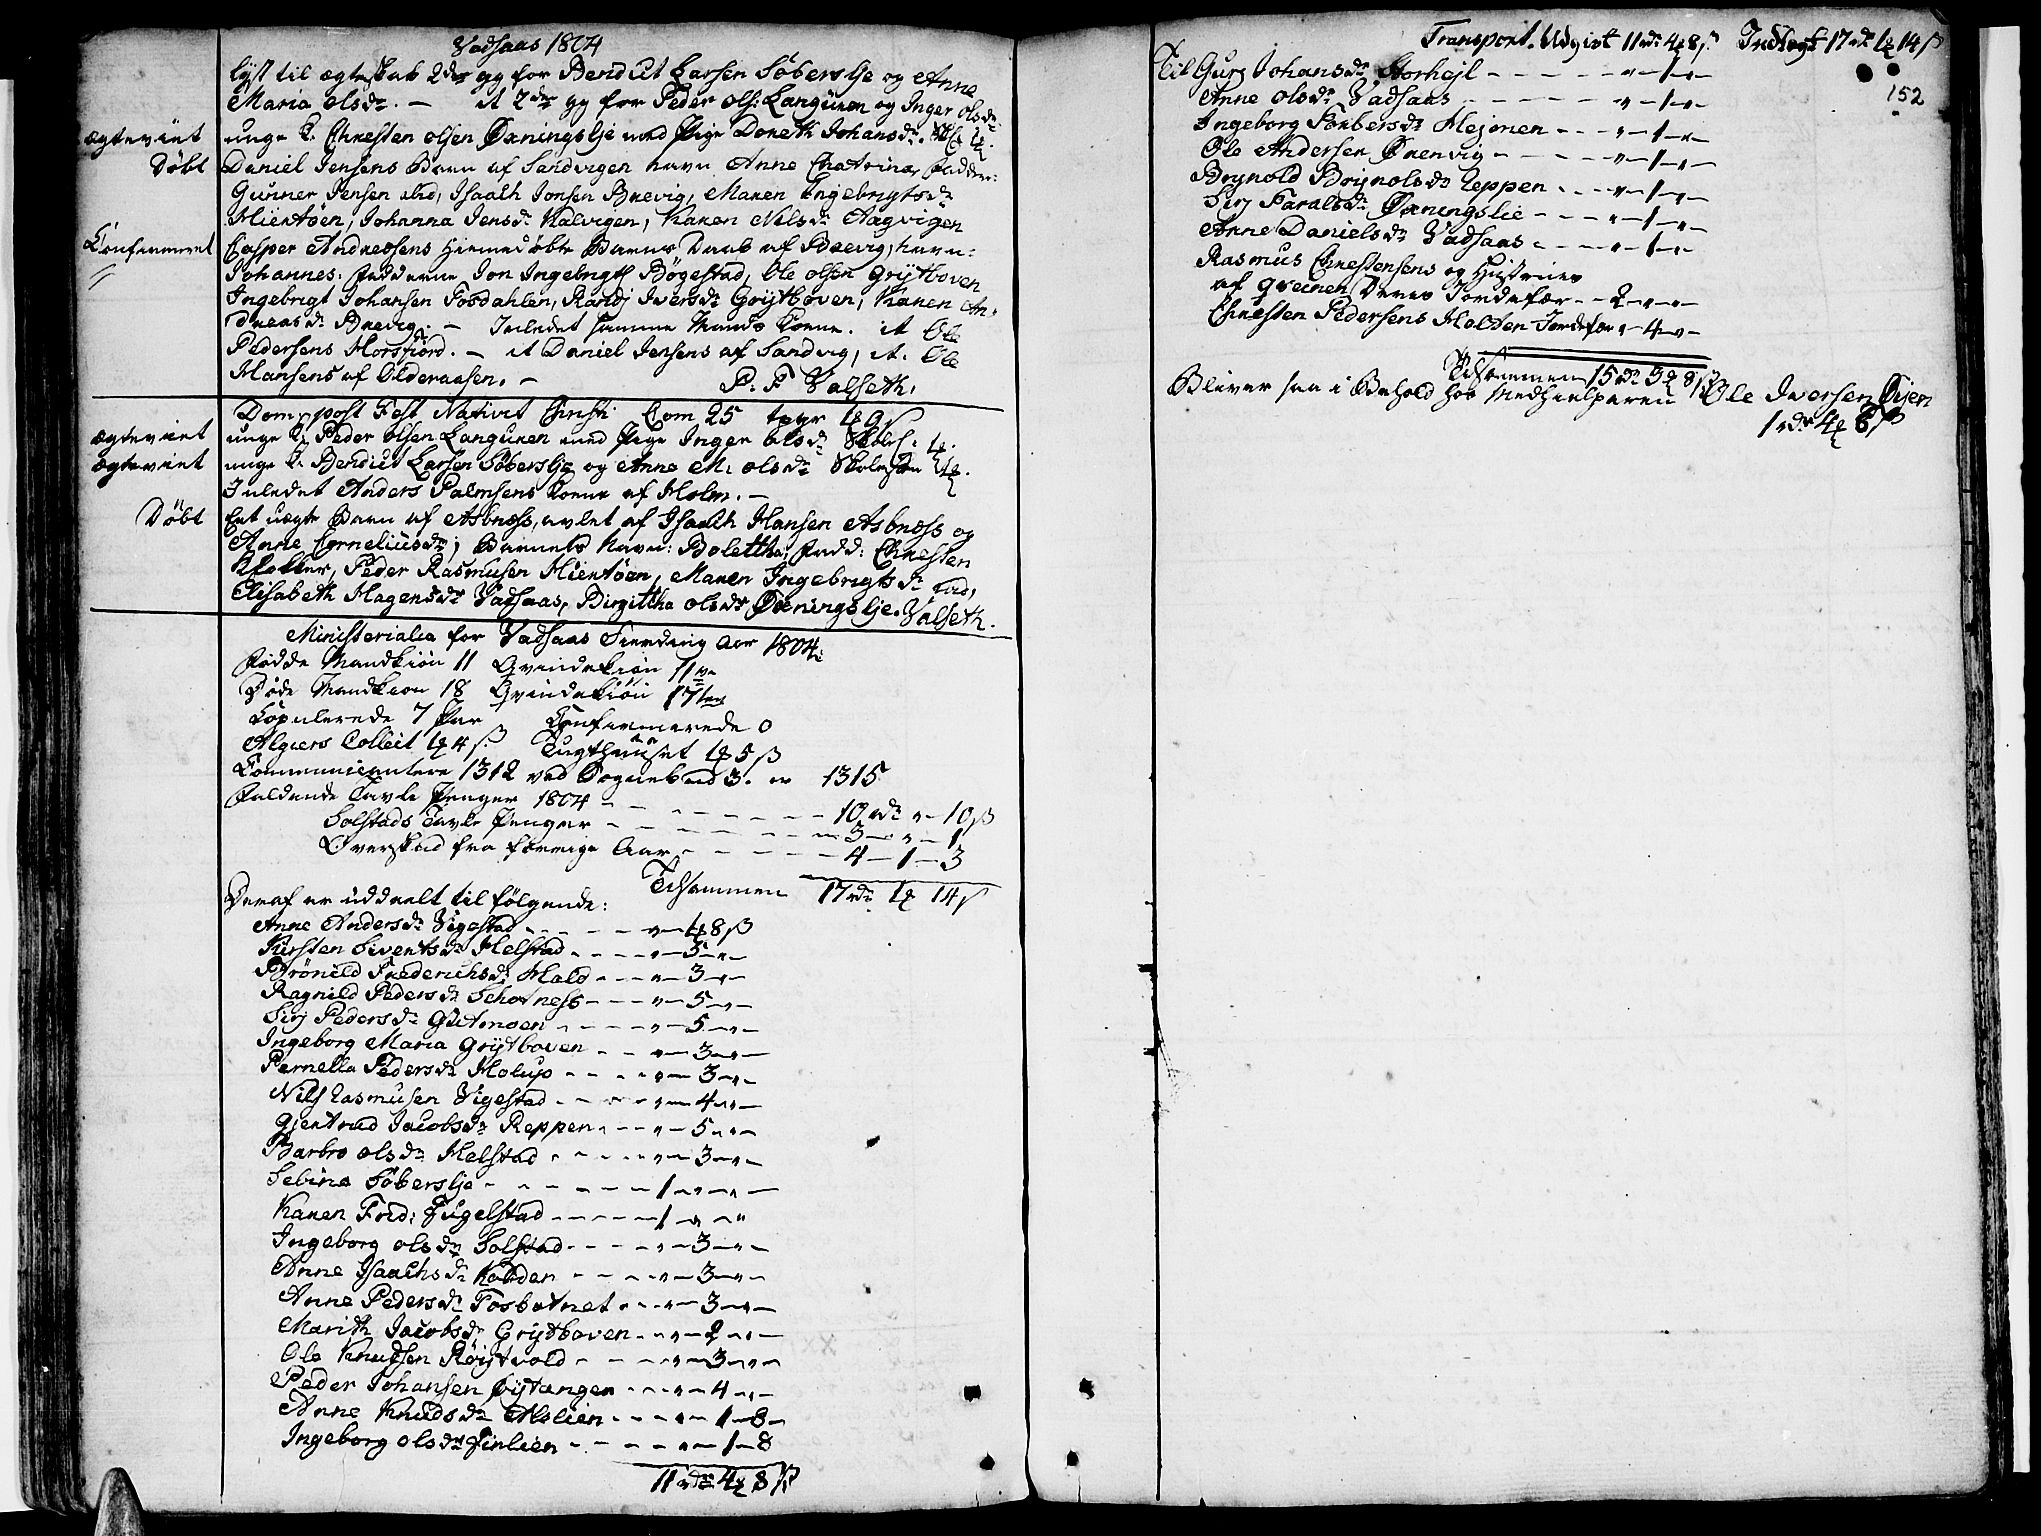 Vadsaas 1804
lyst til ægteskab 2de gg for Bendict Larsen Søberslie og Anne
Maria olsdr. — it 2de gg for Peder ols: Languren og Inger olsdr
ægteviet unge K. Chresten olsen Øxningslje med Pige Doreth Johansdr.
Døbt Daniel Jensens Barn af Sandvigen navn Anne Chatrina, Faddere:
Gunner Jensen ibid, Isaach Jonsen Brevig, Maren Ingebrigtsdr
Hientøen, Johanna Jensdr Kalvigen, Karen Nilsdr Aagvigen
Confirmeret Casper Andreasens hiemedøbte Barns Daab af Brevig, navn:
Johannes: Fadderne Jon Ingebrigts Bøgestad, Ole olsen Grytboven
Ingebrigt Johansen Fosdahlen, Randj Iversdr Grytboven, Karen An-
dreasdr Brevig. — Inledet samme Mands Kone. it Ole
Pedersens Horsfiord. — it Daniel Jensens af Sandvig, it. Ole
Hansens af Olderaasen. — P. F Valseth.
Dom: post Fest Nativit Christi Com 25
ægteviet unge K. Peder olsen Languren med Pige Inger olsdr
ægteviet unge K. Bendict Larsen Søberslje og Anne M. olsdr
Inledet Anders Palmsens Kone af Holm. —
Døbt Eet uægte Barn af Asbnæss, avlet af Isaach Hansen Asbnæss og
Anne Corneliusdr; Barnets Navn: Bolettha; Fadd: Chresten
Klokker, Peder Rasmusen Hientøen, Maren Ingebrigtsdr ibid,
Elisabeth Hagensdr Vadsaas, Birgittha olsdr Øxningslje. Valseth.
Ministerialia for Vadsaas Fierding Aar 1804:
Fødde Mandkiøn 11 Qvindekiøn 11
Døde Mandkiøn 18 Qvindekiøn 17
Copulerede 7 Par Confirmerede 0
Algiers Collect 1 4 ß. Tugthuuset 1 5 ß
Communicantere 1312 ved Sognebud 3. er 1315
Faldende Tavle Penger 1804 - - - 10 rdr „ - 10 ß
Solstads Tavle Penger - - - 3 - „ - 1
Overskud fra forrige Aar - - - 4 - 1 - 3
Tilsammen 17 rdr 1 14 ß
Deraf er uddeelt til følgende:
Anne Andersdr Vigestad - - - 4 8 ß
Kirsten Sivertsdr Helstad - - - „ - 5 - „ -
Brønild Frederichsdr Hald - - - „ - 3 - „ -
Ragnild Pedersdr Schotness - - - „ - 5 - „ -
Sirj Pedersdr Gutmoen - - - „ - 5 - „ -
Ingeborg Maria Grytboven - - - „ - 3 - „ -
Pernella Pedersdr Holup - - - „ - 3 - „ -
Nils Rasmusen Vigestad - - - „ - 4 - „ -
Gjertrud Jacobsdr Reppen - - - „ - 5 - „ -
Barbro olsdr Helstad - - - „ - 3 - „ -
Sebina Søberslje - - - 1 - „ - „ -
Karen Frid: Fugelstad - - - 1 - „ - „
Ingeborg olsdr Solstad - - - „ - 3 - „ -
Anne Isaachsdr Kolden - - - „ - 3 - „ -
Anne Pedersdr Fosbotnet - - - „ - 3 - „ -
Marith Jacobsdr Grytboven - - - „ - 2 - „ -
Ole Knudsen Røytvold - - - „ - 3 - „ -
Peder Johansen Øytangen - - - „ - 4 - „ -
Anne Knudsdr Alslien - - - „ - 1 - 8 -
Ingeborg olsdr Finlien - - - „ - 1 - 8
11 rdr 4 8 ß
Transport. Udgivt 11 rdr 4 8 ß Indtægt 17 rdr 1 14 ß
152
Til Gurj Johansdr Storhejl - - - „ - 1 - „ -
Anne olsdr Vadsaas - - - „ - 1 - „ -
Ingeborg Torbersdr Hejmen - - - „ - 1 - „ -
Ole Andersen Ørenvig - - - „ - 1 - „ -
Brynild Brynolsdr Reppen - - - „ - 1 - „ -
Sirj Taralsdr Øxningslie - - - „ - 1 - „ -
Anne Danielsdr Vadsaas - - - „ - 1 - „ -
Rasmus Chrestensens og Hustrues
af Greinen Deres Jordefær - - 2 - „ - „ -
Chresten Pedersens Holten Jordefær „ - 4 - „ -
Tilsammen 15 rdr 3 8 ß
Bliver saa i Behold hos Medhielperen Ole Iversen Øien
1 rdr 4 6 ß